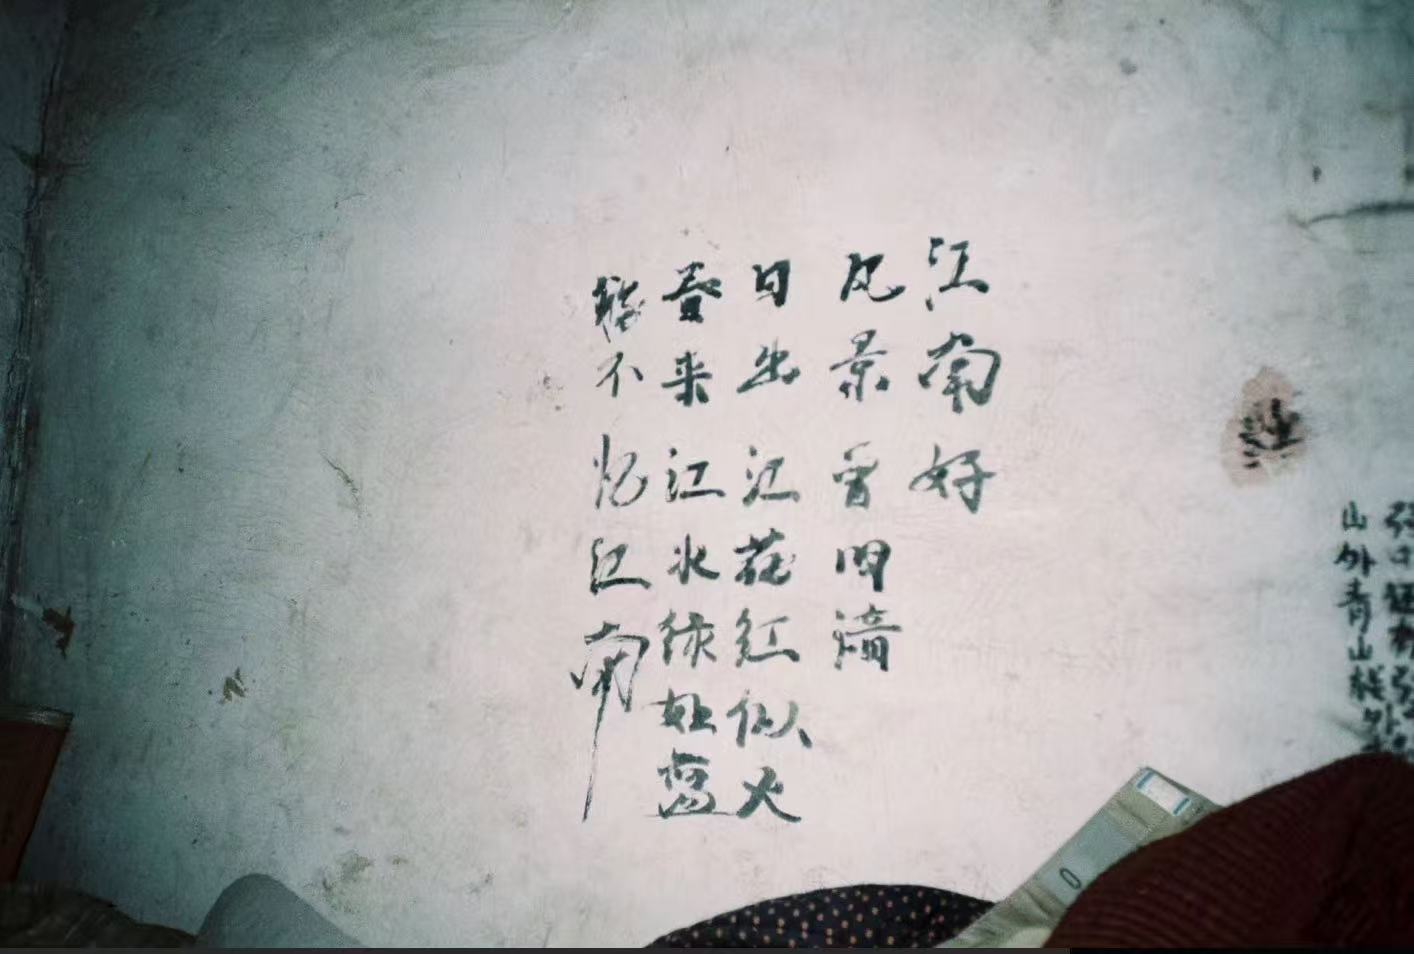 山外青山楼外
江南好
风景曾旧谙
日出江花红似火
春来江水绿如蓝
能不忆江南
0